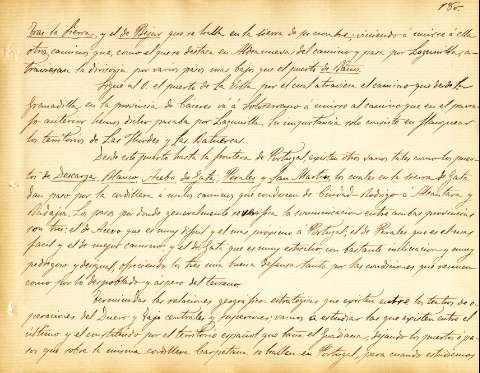 180.
Tras la Sierra, y el de Bejar que se halla en la sierra de su nombre, viniendo á unirse á ella
otros caminos que, como el que se destaca en Aldeanueva del camino y pasa por Lagunilla, a-
traviesan la divisoria por varios pasos mas bajos que el puerto de Baños.
Sigue al O. el puerto de la Villa por el cual atraviesa el camino que desde la
Granadilla, en la provincia de Caceres vá á Sotoserrano á unirse al camino que en el parra-
fo anterior hemos dicho pasaba por Lagunilla. Su importancia solo consiste en flanquear
los territorios de Las Hurdes y Las Batuecas.
Desde este puerto hasta la frontera de Portugal, existen otros varios tales como los puer-
tos de Descarga, Blanco, Acebo de Gata, Perales y San Martin, los cuales en la sierra de Gata
dan paso por la cordillera á unos caminos que conducen de Ciudad-Rodrigo á Alcantara y
Badajoz. Los pasos por donde generalmente se verifica la comunicacion entre ambas provincias
son tres: el de Acevo que es muy dificil y el mas proximo á Portugal; el de Perales que es el mas
facil y el de mejor camino y el de Gata que es muy estrecho, con bastante inclinacion y muy
pedregoso y desigual, ofreciendo los tres una buena defensa tanto por las condiciones que reunen
como por lo despoblado y aspero del terreno.
Terminadas las relaciones geografico-estrategicas que existen entre los teatros de o-
peraciones del Duero y Tajo centrales y superiores, vamos á estudiar las que existen entre el
último y el constituido por el territorio español que baña el Guadiana, dejando los puertos ó pa-
sos que sobre la misma cordillera Carpetana se hallan en Portugal, para cuando estudiemos